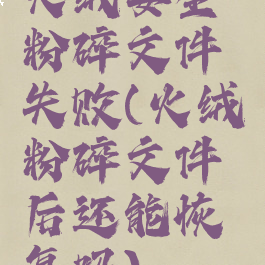 火绒安全
粉碎文件
失败(火绒
粉碎文件
后还能恢
复吗)